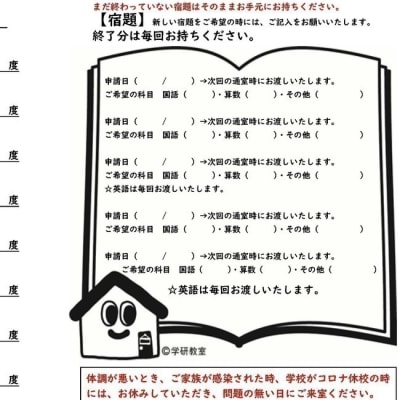 まだ終わっていない宿題はそのままお手元にお持ちください。
【宿題】新しい宿題をご希望の時には、ご記入をお願いいたします。
終了分は毎回お持ちください。
申請日（　　/　　）→次回の通室時にお渡しいたします。
ご希望の科目　国語（　　）・算数（　　）・その他（　　　　）
申請日（　　/　　）→次回の通室時にお渡しいたします。
ご希望の科目　国語（　　）・算数（　　）・その他（　　　　）
申請日（　　/　　）→次回の通室時にお渡しいたします。
ご希望の科目　国語（　　）・算数（　　）・その他（　　　　）
☆英語は毎回お渡しいたします。
申請日（　　/　　）→次回の通室時にお渡しいたします。
ご希望の科目　国語（　　）・算数（　　）・その他（　　　　）
申請日（　　/　　）→次回の通室時にお渡しいたします。
ご希望の科目　国語（　　）・算数（　　）・その他（　　　　）
☆英語は毎回お渡しいたします。
©学研教室
体調が悪いとき、ご家族が感染された時、学校がコロナ休校の時
には、お休みしていただき、問題の無い日にご来室ください。
度
度
度
度
度
度
度
度